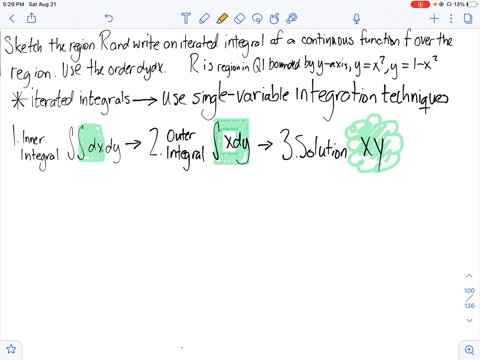 5:29 PM Sat Aug 21
13%
Sketch the region R and write an iterated integral of a continuous function f over the
region. Use the order dydx. R is region in Q1 bounded by y-axis, y=x², y=1-x²
*iterated integrals → use single-variable integration techniques
1. Inner Integral ∫∫dxdy → 2. Outer Integral ∫xdy → 3. Solution xy
100
/
126